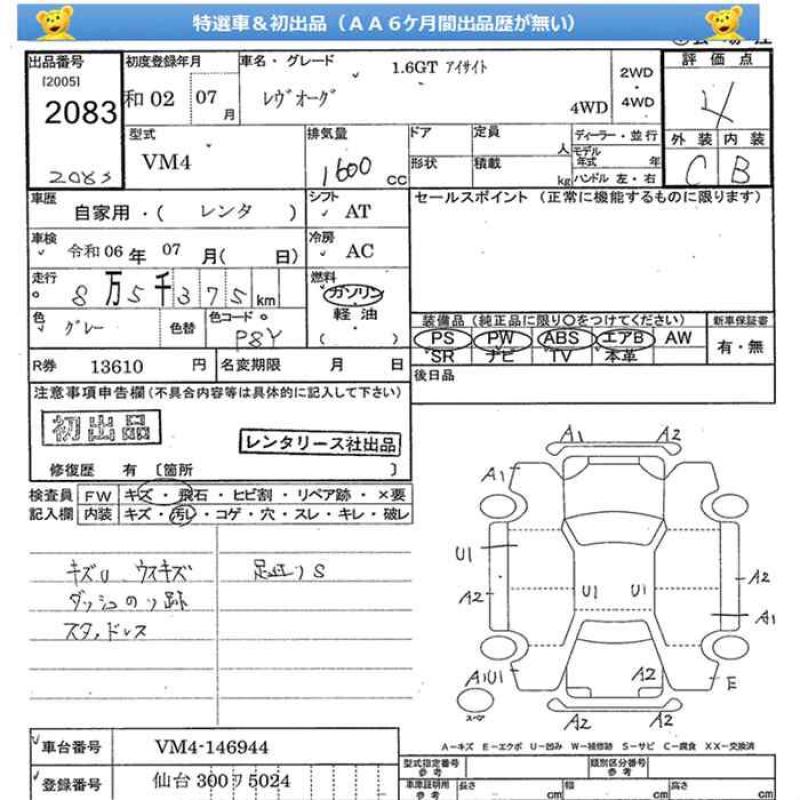 特選車＆初出品（ＡＡ６ケ月間出品歴が無い）
出品番号
[2005]
2083
2083
初度登録年月
和 02 07 月
車名・グレード
1.6GT アイサイト
レヴォーグ
4WD
2WD
4WD
評価点
4
外装 内装
C B
型式
VM4
排気量
1600 cc
ドア
定員
人
形状
積載
kg
ディーラー・並行
モデル年式 年
ハンドル 左・右
車歴
自家用・( レンタ )
シフト
AT
セールスポイント（正常に機能するものに限ります）
車検
令和 06 年 07 月( 日)
冷房
AC
走行
8万5千375 km
燃料
ガソリン
軽油
( )
色
グレー
色替
色コード
P8Y
装備品（純正品に限り〇をつけてください）
PS PW ABS エアB AW
SR ナビ TV 本革
新車保証書
有・無
R券 13610 円
名変期限 月 日
後日品
注意事項申告欄(不具合内容等は具体的に記入して下さい)
初出品
レンタリース社出品
修復歴 有 〔箇所 〕
検査員 FW キズ・飛石・ヒビ割・リペア跡・×要
記入欄 内装 キズ・汚レ・コゲ・穴・スレ・キレ・破レ
キズU ウスキズ
足廻りS
ダッシュのり跡
スタッドレス
A1 A2
A1
U1
A2
U1 U1
A2
A1
A1U1
A2
E
スペア
A2 A2
A－キズ E－エクボ U－凹み W－補修跡 S－サビ C－腐食 XX－交換済
車台番号 VM4-146944
登録番号 仙台 300 ワ 5024
型式指定番号 参考
類別区分番号 参考
車庫証明用 参考
長さ cm
幅 cm
高さ cm